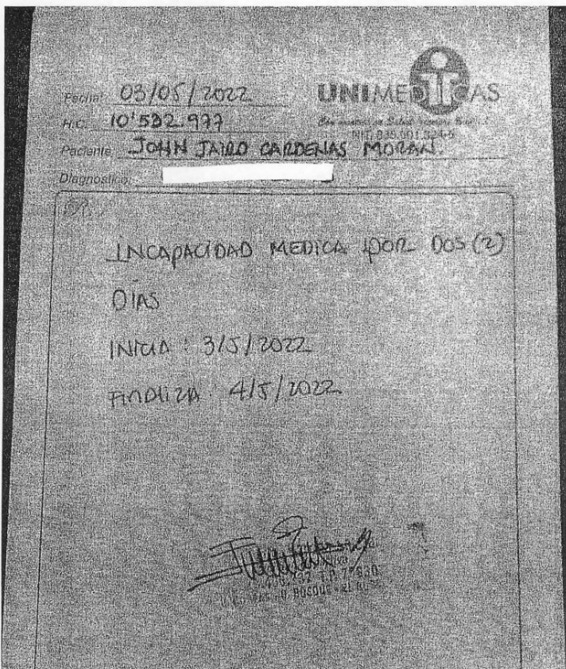 Fecha: 03/05/2022
UNIMEDICAS
H.C. 10'532.977
NIT. 835.001.324-5
Paciente: JOHN JAIRO CARDENAS MORAN.
Diagnostico:
INCAPACIDAD MEDICA POR DOS (2)
DÍAS
INICIA : 3/5/2022
FINALIZA : 4/5/2022